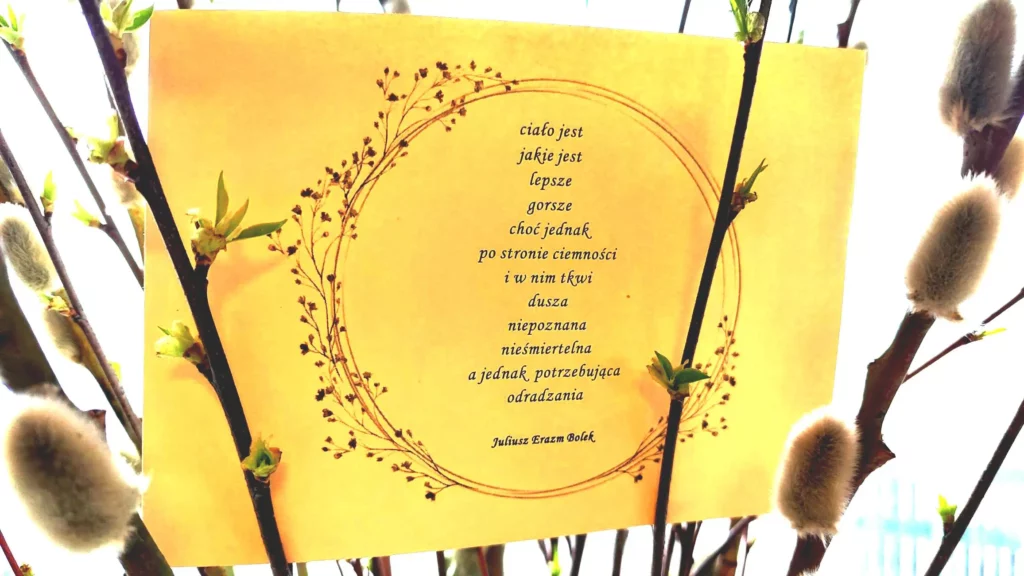 ciało jest
jakie jest
lepsze
gorsze
choć jednak
po stronie ciemności
i w nim tkwi
dusza
niepoznana
nieśmiertelna
a jednak potrzebująca
odradzania
Juliusz Erazm Bolek